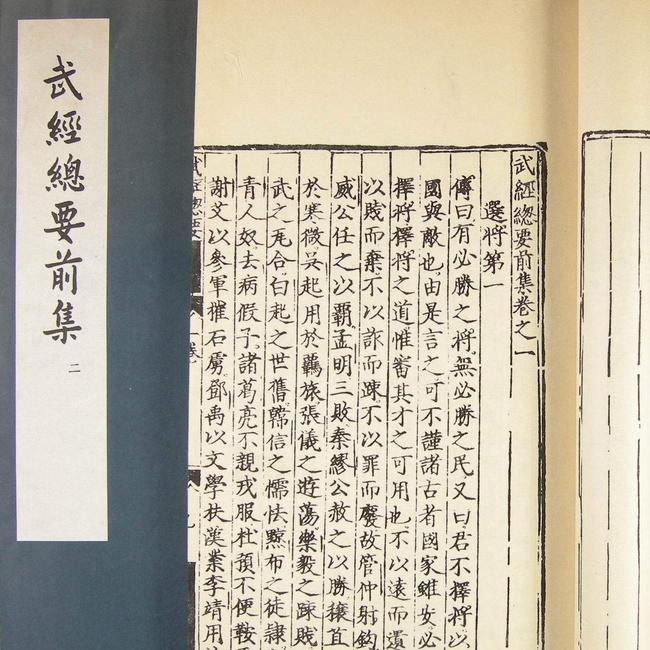 武經總要前集
二
武經總要前集卷之一
選將第一
傳曰有必勝之將無必勝之民又曰君不擇將以
國與敵也由是言之可不謹諸古者國家雖安必
擇將擇將之道惟審其才之可用也不以遠而遺
以賤而棄不以詐而踈不以罪而廢故管仲射鈎
威公任之以霸孟明三敗秦繆公赦之以勝穰苴
於寒微吳起用於羈旅張儀之遊蕩樂毅之踈賤
武之瓦合白起之世舊韓信之懦怯黥布之徒隸
青人奴去病假子諸葛亮不親戎服杜預不便鞍
謝艾以參軍摧石虜鄧禹以文學扶漢業李靖用
武經總要